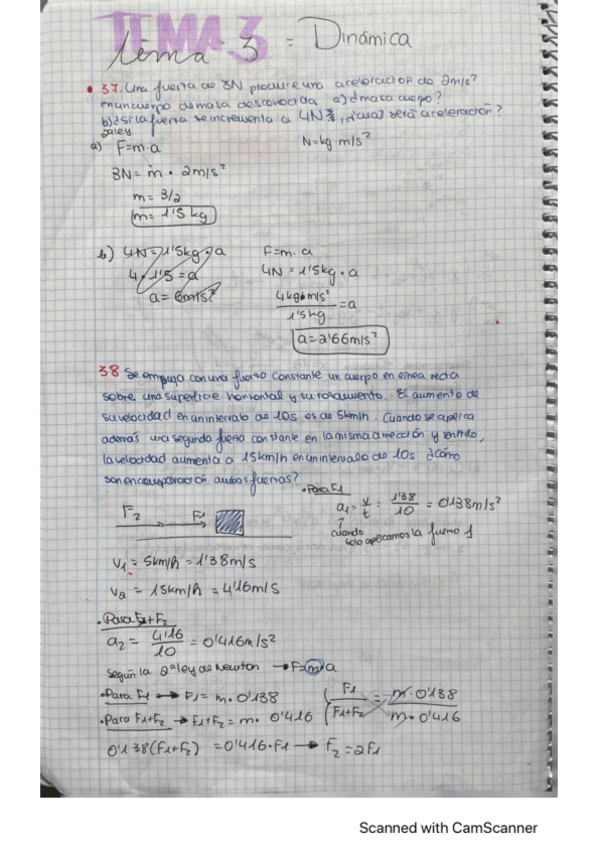 TEMA 3
Tema 3 = Dinámica
• 37. Una fuerza de 3N produce una aceleración de 2m/s²
en un cuerpo de masa desconocida a) ¿masa cuerpo?
b) ¿Si la fuerza se incrementa a 4N, ¿cual será aceleración?
2aley
a) F=m·a N=kg·m/s²
3N = m · 2m/s²
m = 3/2
m = 1'5 kg
b) 4N=1'5kg·a F=m·a
4·1'5=a 4N = 1'5kg·a
a=6m/s² 4kg·m/s² / 1'5kg = a
a=2'66m/s²
38 Se empuja con una fuerza constante un cuerpo en línea recta
sobre una superficie horizontal y su rozamiento. El aumento de
su velocidad en un intervalo de 10s es de 5km/h. Cuando se aplica
además una segunda fuerza constante en la misma dirección y sentido,
la velocidad aumenta a 15km/h en un intervalo de 10s ¿cómo
son en comparación ambas fuerzas?
• Para F1
F2 F1
a1 = v/t = 1'38/10 = 0'138m/s²
cuando
solo aplicamos la fuerza 1
V1 = 5km/h = 1'38m/s
V2 = 15km/h = 4'16m/s
• Para F1+F2
a2 = 4'16/10 = 0'416m/s²
según la 2ªley de Newton → F=m·a
• Para F1 → F1 = m·0'138
F1/F1+F2 = m·0'138/m·0'416
• Para F1+F2 → F1+F2 = m·0'416
0'138(F1+F2) = 0'416·F1 → F2=2F1
Scanned with CamScanner